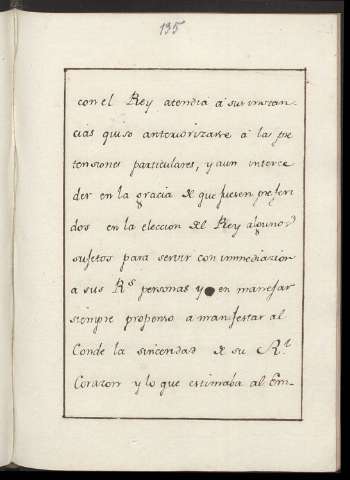 195
con el Rey atendia á sus instan-
cias quiso anteriorizarse á las pre
tensiones particulares, y aun interce
der en la gracia de que fuesen preferi
dos en la eleccion del Rey algunos
sujetos para servir con immediacion
a sus R.s personas y en manejar
siempre propenso a manifestar al
Conde la sinceridad de su R.l
Corazon y lo que estimaba al Em-